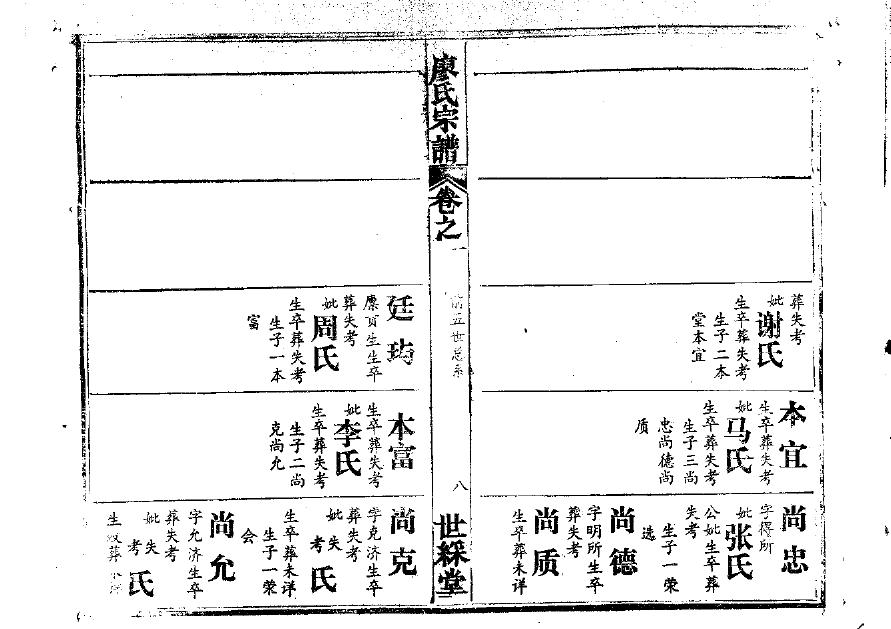 葬失考
妣谢氏
生卒葬失考
生子二本
堂本宜
本宜
生卒葬失考
妣马氏
生卒葬失考
生子三尚
忠尚德尚
质
尚忠
字得所
妣张氏
公妣生卒葬
失考
生子一荣
选
尚德
字明所生卒
葬失考
尚质
生卒葬未详
廖氏宗譜
卷之一
前五世总系
八
世綵堂
廷
廪贡生生卒
葬失考
妣周氏
生卒葬失考
生子一本
富
本富
生卒葬失考
妣李氏
生卒葬失考
生子二尚
克尚允
尚克
字克济生卒
葬失考
妣失考氏
生卒葬未详
生子一荣
会
尚允
字允济生卒
葬失考
妣失考氏
生殁葬